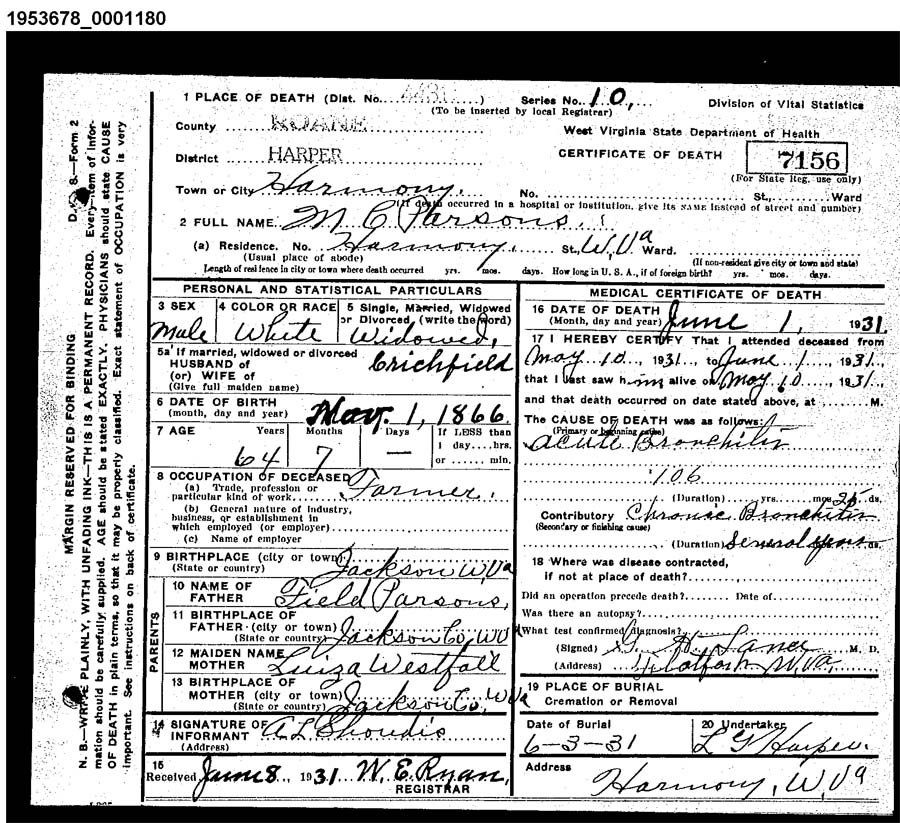 1953678_0001180
1 PLACE OF DEATH (Dist. No. 4431) Series No. 10,
(To be inserted by local Registrar)
Division of Vital Statistics
County ROANE
West Virginia State Department of Health
District HARPER
CERTIFICATE OF DEATH 7156
(For State Reg. use only)
Town or City Harmony. No. St., Ward
(If death occurred in a hospital or institution, give its NAME instead of street and number)
2 FULL NAME M C Parsons
(a) Residence. No. Harmony, St., W. Va Ward.
(Usual place of abode) (If non-resident give city or town and state)
Length of residence in city or town where death occurred yrs. mos. days. How long in U. S. A., if of foreign birth? yrs. mos. days.
MARGIN RESERVED FOR BINDING
N. B.—WRITE PLAINLY, WITH UNFADING INK—THIS IS A PERMANENT RECORD. Every item of infor-
mation should be carefully supplied. AGE should be stated EXACTLY. PHYSICIANS should state CAUSE
OF DEATH in plain terms, so that it may be properly classified. Exact statement of OCCUPATION is very
important. See instructions on back of certificate.
8.—Form 2
PERSONAL AND STATISTICAL PARTICULARS
3 SEX 4 COLOR OR RACE 5 Single, Married, Widowed
or Divorced, (write the word)
Male White Widowed,
5a If married, widowed or divorced
HUSBAND of Crichfield
(or) WIFE of
(Give full maiden name)
6 DATE OF BIRTH
(month, day and year) Nov. 1, 1866
7 AGE Years Months Days If LESS than
1 day....hrs.
or ...... min.
64 7 —
8 OCCUPATION OF DECEASED
(a) Trade, profession or
particular kind of work Farmer.
(b) General nature of industry,
business, or establishment in
which employed (or employer)
(c) Name of employer
9 BIRTHPLACE (city or town)
(State or country) Jackson W. Va
PARENTS
10 NAME OF
FATHER Field Parsons,
11 BIRTHPLACE OF
FATHER (city or town)
(State or country) Jackson Co, W Va
12 MAIDEN NAME
MOTHER Luiza Westfall
13 BIRTHPLACE OF
MOTHER (city or town)
(State or country) Jackson Co, W Va
14 SIGNATURE OF
INFORMANT A L
(Address)
15
Received June 8, 1931 W. E. Ryan,
REGISTRAR
MEDICAL CERTIFICATE OF DEATH
16 DATE OF DEATH
(Month, day and year) June 1, 1931.
17 I HEREBY CERTIFY That I attended deceased from
May 10, 1931, to June 1, 1931
that I last saw him alive on May 10, 1931.
and that death occurred on date stated above, at M.
The CAUSE OF DEATH was as follows:
(Primary or beginning cause)
Acute Bronchitis
106
(Duration) yrs. mos. 25 ds.
Contributory Chronic Bronchitis
(Secondary or finishing cause)
(Duration) Several years ds.
18 Where was disease contracted,
if not at place of death?
Did an operation precede death? Date of
Was there an autopsy?
What test confirmed diagnosis?
(Signed) M. D.
(Address) W. Va.
19 PLACE OF BURIAL
Cremation or Removal
Date of Burial 20 Undertaker
6-3-31 L G Harper.
Address
Harmony, W, Va